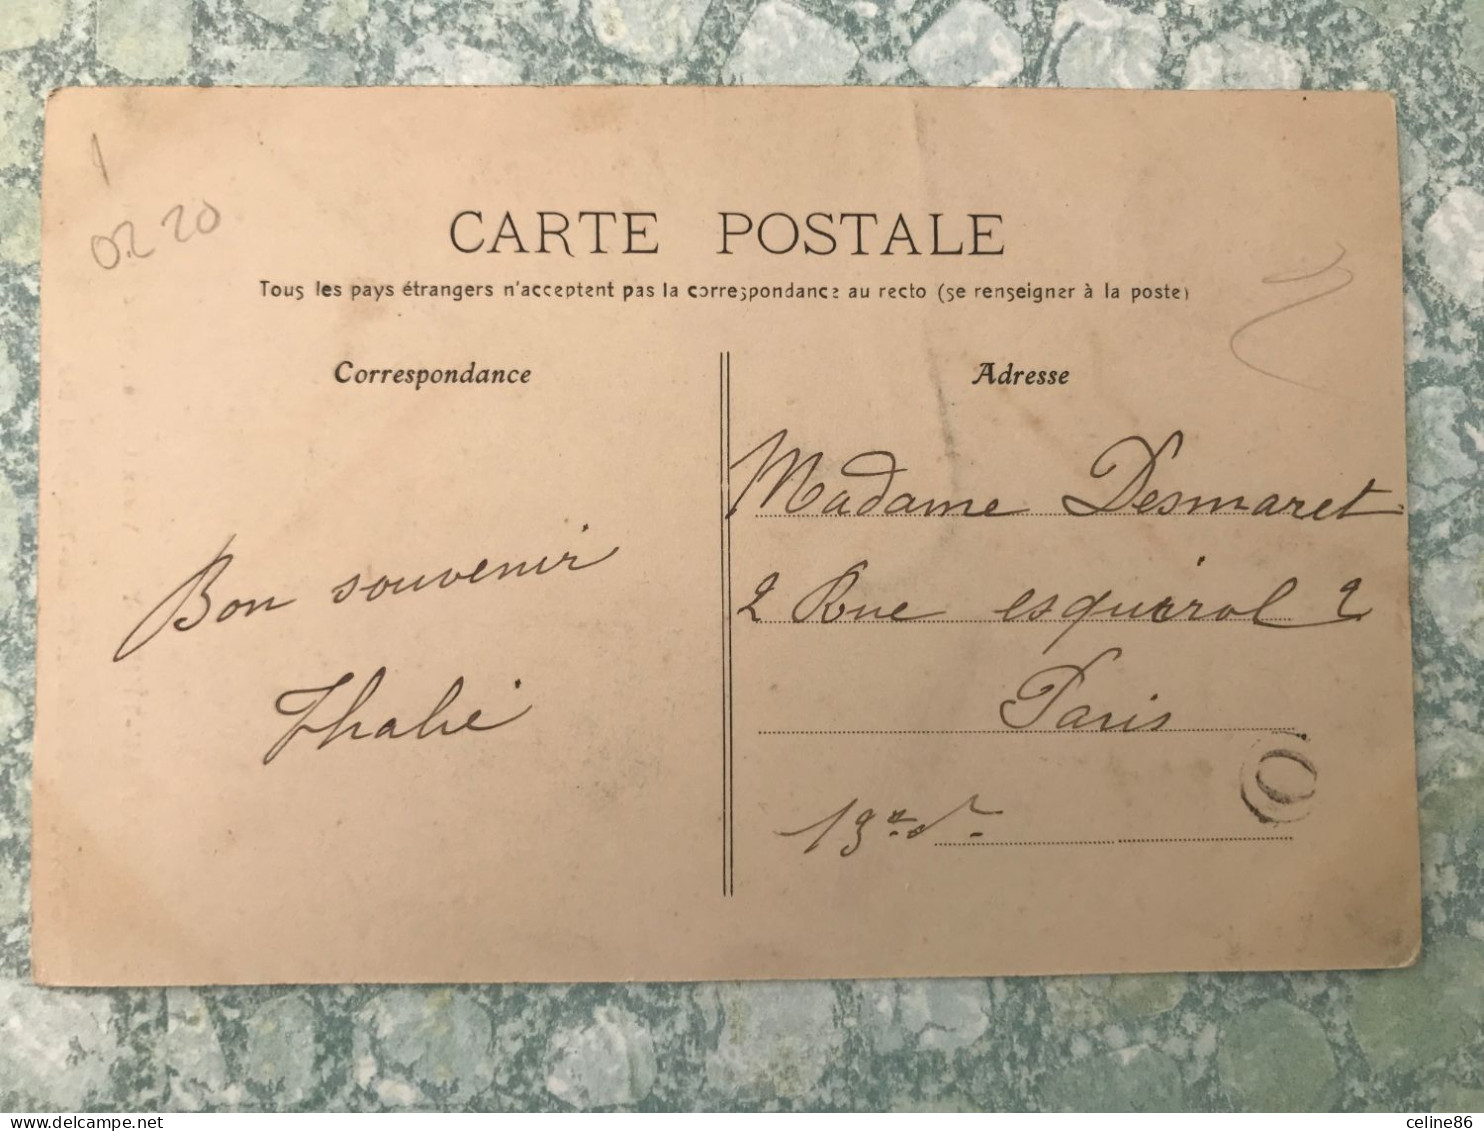 02 20
CARTE POSTALE
Tous les pays étrangers n'acceptent pas la correspondance au recto (se renseigner à la poste)
Correspondance
Adresse
Bon souvenir
Thalie
Madame Desmaret
2 Rue esquirol 2
Paris
13
delcampe.net
celine86